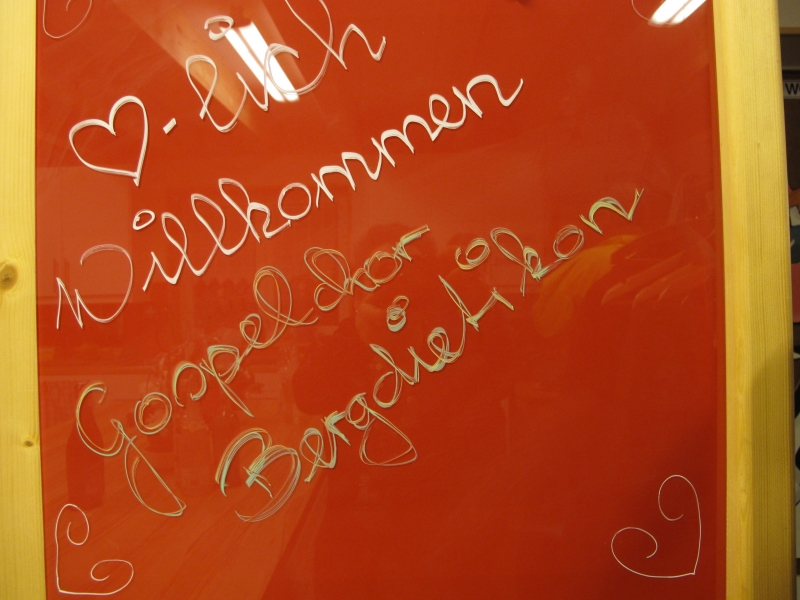 ♥-lich
Willkommen
Gospelchor
Bergdietikon